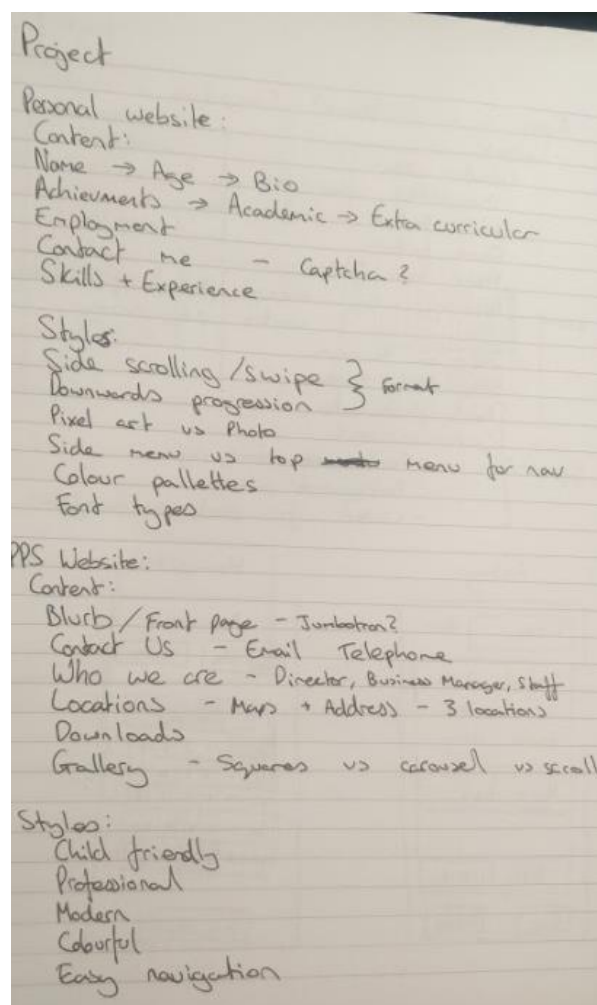 Project
Personal website:
Content:
Name → Age → Bio
Achievments → Academic → Extra curricular
Employment
Contact me - Captcha?
Skills + Experience
Styles:
Side scrolling / swipe } format
Downwards progression
Pixel art vs Photo
Side menu vs top menu for nav
Colour pallettes
Font types
PPS Website:
Content:
Blurb / Front page - Jumbotron?
Contact Us - Email Telephone
Who we are - Director, Business Manager, Staff
Locations - Maps + Address - 3 locations
Downloads
Gallery - Squares vs carousel vs scroll
Styles:
Child friendly
Professional
Modern
Colourful
Easy navigation